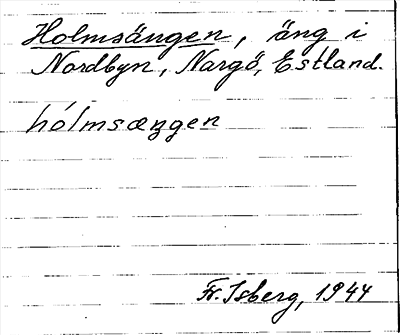 Holmsängen, äng i
Nordbyn, Nargö, Estland.
hólmsæŋgen
Fr. Isberg, 1944